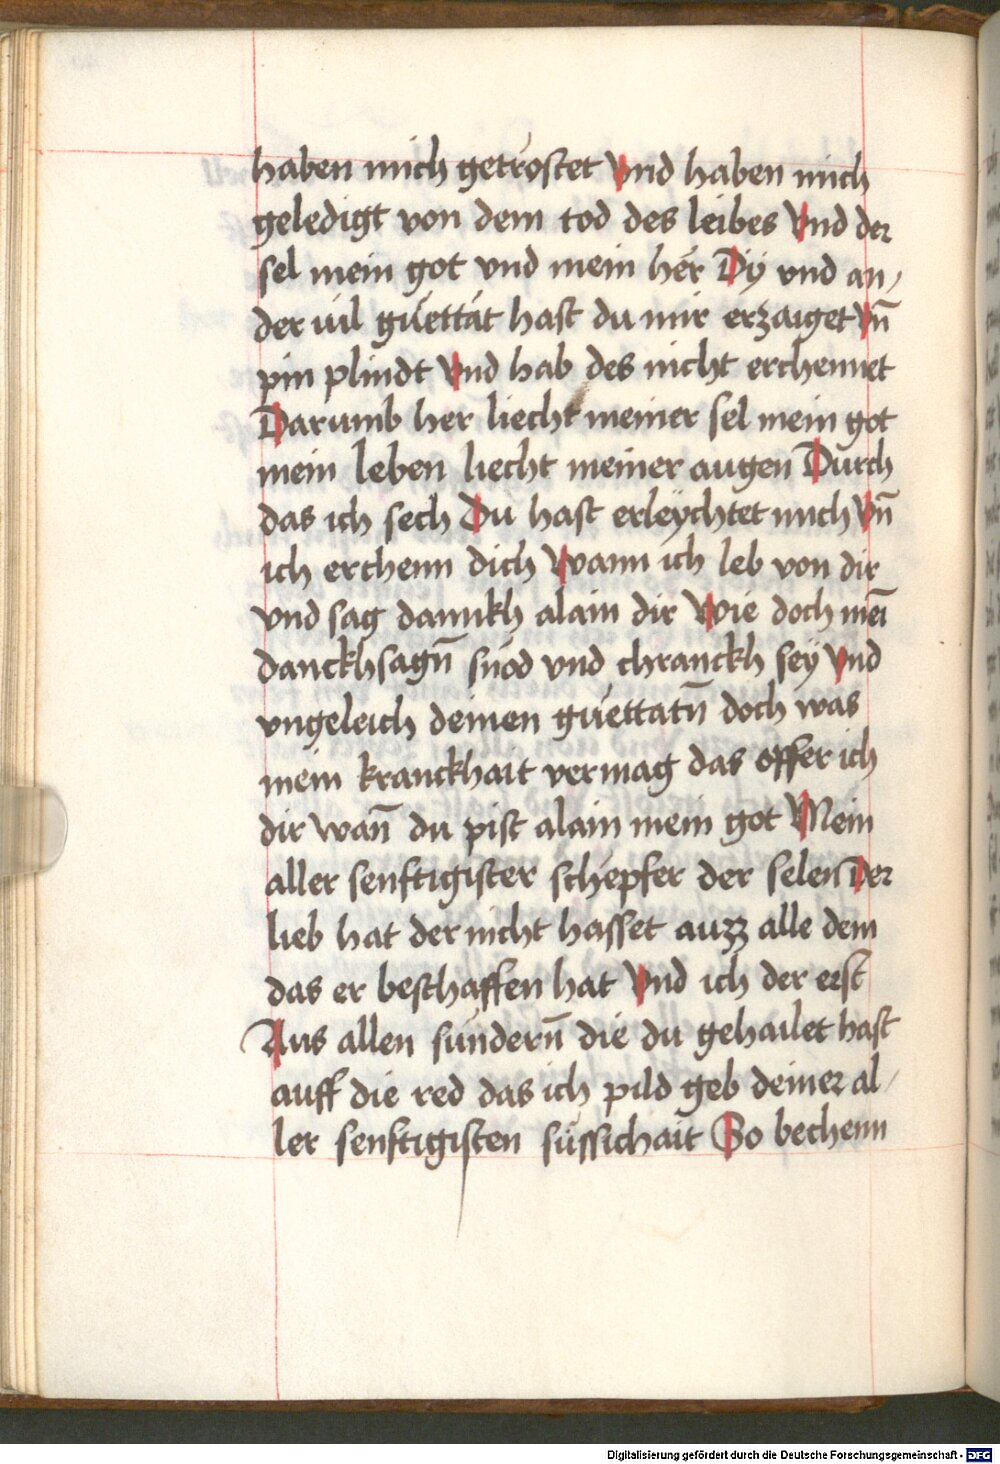 haben mich getrostet Vnd haben mich
geledigt von dem tod des leibes Vnd der
sel mein got vnd mein her Dÿ vnd an/
der uil guettat hast du mir erzaiget Vn̄
pin plindt Vnd hab des nicht erchennet
Darumb her liecht meiner sel mein got
mein leben liecht meiner augen Durch
das ich sech Du hast erleÿchtet mich Vn̄
ich erchenn dich Wann ich leb von dir
vnd sag dannkh alain dir Wie doch mei̅
danckhsagn̄ snod vnd chranckh seÿ Vnd
vngeleich deinen guettatn̄ doch was
mein kranckhait vermag das offer ich
dir wan̄ du pist alain mein got Mein
aller senftigister schepfer der selen Der
lieb hat der nicht hasset auzz alle dem
das er beschaffen hat Vnd ich der erst
Aus allen sundern̄ die du gehailet hast
auff die red das ich pild geb deiner al/
ler senftigisten süssichait So bechenn
Digitalisierung gefördert durch die Deutsche Forschungsgemeinschaft - DFG